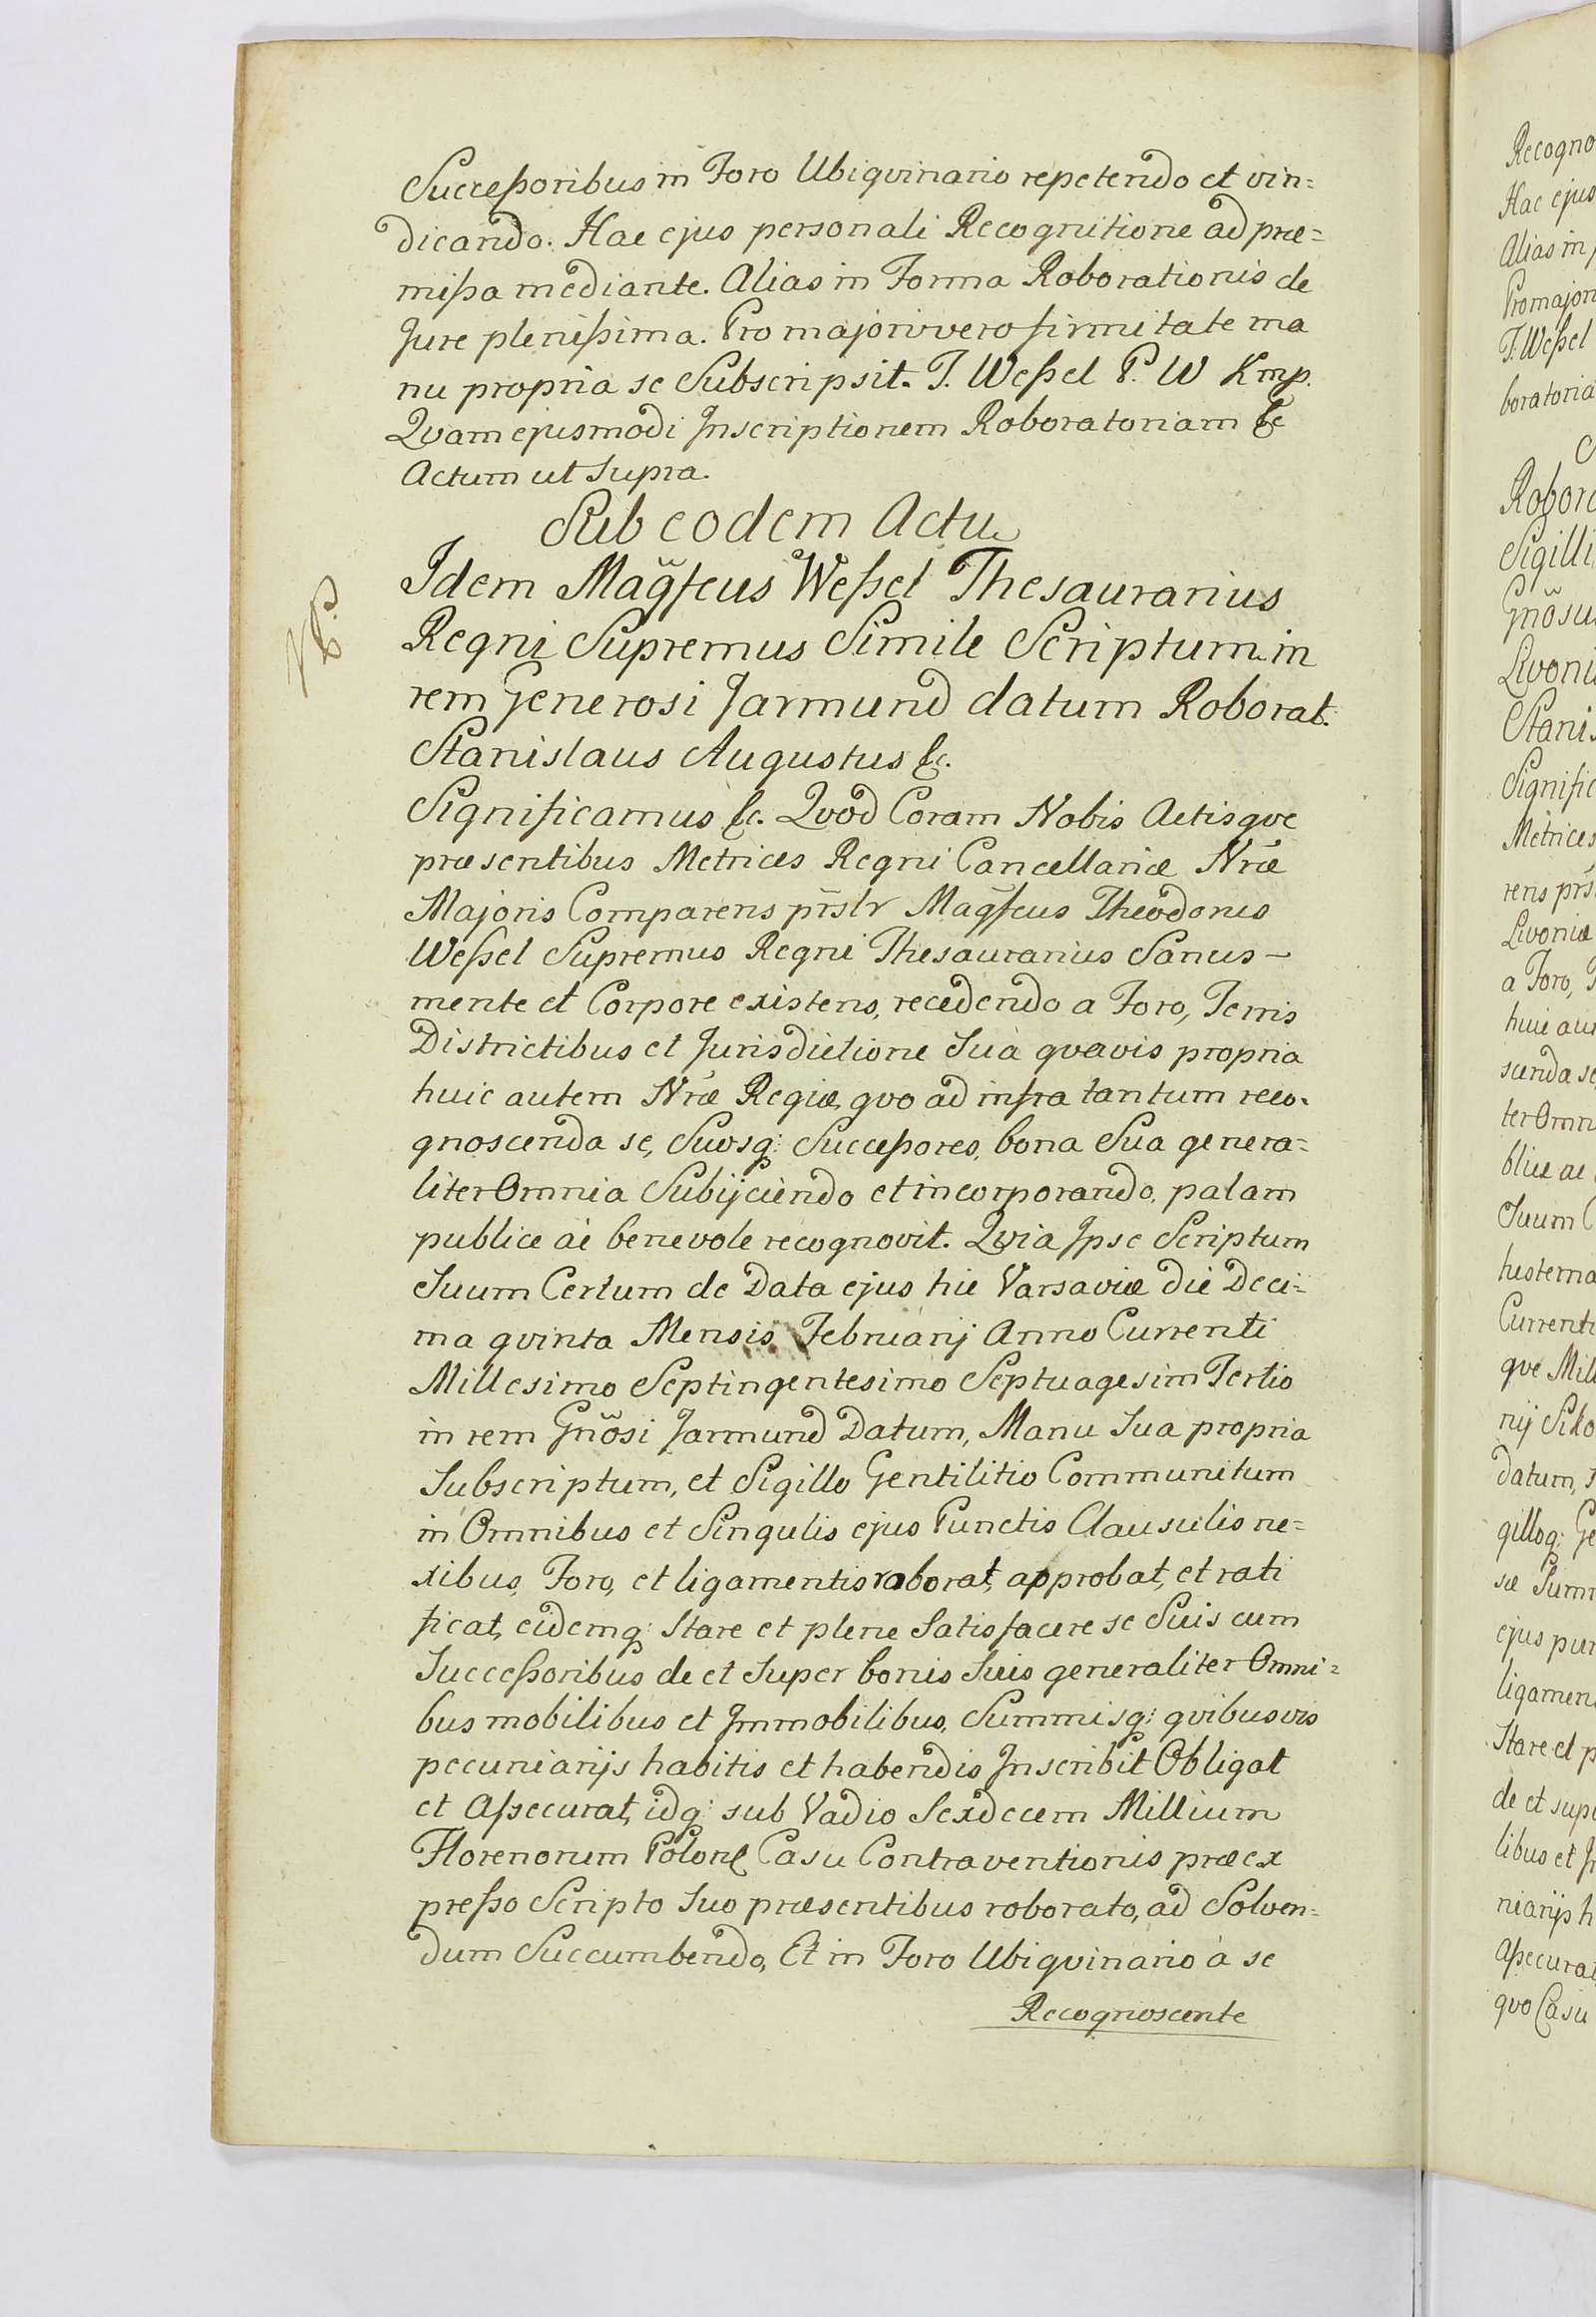 Succeßoribus in Foro Ubiqvinario repetendo et vin=
dicando. Hac ejus personali Recognitione ad præ=
mißa mediante. Alias in Forma Roborationis de
Jure plenißima. Pro majori vero firmitate ma
nu propria se Subscripsit. T. Weßel P. W Kmp.
Qvam ejusmodi Inscriptionem Roboratoriam &c
Actum ut Supra.
Sub eodem Actu
Idem Magñfcus Weßel Thesaurarius
Regni Supremus Simile Scriptum in
rem Generosi Jarmund datum Roborat.
Stanislaus Augustus &c.
Significamus &c. Qvod Coram Nobis Actisqve
præsentibus Metrices Regni Cancellariæ Nræ
Majoris Comparens prslr Magfcus Theodorus
Weßel Supremus Regni Thesaurarius Sanus –
mente et Corpore existens, recedendo a Foro, Terris
Districtibus et Jurisdictione Sua qvavis propria
huic autem Nræ Regiæ, qvo ad infra tantum reco-
gnoscenda se, Suosq: Succeßores, bona Sua genera=
liter Omnia Subijciendo et incorporando, palam
publice ac benevole recognovit. Qvia Ipse Scriptum
Suum Certum de Data ejus hic Varsaviæ die Deci=
ma qvinta Mensis Februarij Anno Currenti
Millesimo Septingentesimo Septuagesim Tertio
in rem Gnõsi Jarmund Datum, Manu Sua propria
Subscriptum, et Sigillo Gentilitio Communitum
in Omnibus et Singulis ejus Punctis Clausulis ne=
xibus, Foro, et ligamentis roborat, approbat, et rati
ficat, eidemq: Stare et plene Satisfacere se Suis cum
Succeßoribus de et Super bonis Suis generaliter Omni=
bus mobilibus et Immobilibus, Summisq: qvibusvis
pecuniarijs habitis et habendis Inscribit Obligat
et Aßecurat, idq: sub Vadio Sexdecem Millium
Florenorum Polonl Casu Contraventionis præex
preßo Scripto Suo præsentibus roborato, ad Solven=
dum Succumbendo, Et in Foro Ubiqvinario à se
Recognoscente
Recogno
Hac ejus
Alias in
Pro major
T. Weßel
boratoria
Robora
Sigilli
Gnõsu
Livoni
Stanis
Signific
Metrices
rens prs
Livoniæ
a Foro,
huic aut
scenda se
ter Omn
blice ac
Suum C
Currenti
qve Mill
datum,
gilloq: Ge
sæ Summ
ejus pun
ligamen
Stare et p
de et supe
libus et Im
niarijs h
Aßecurat
qvo Casu